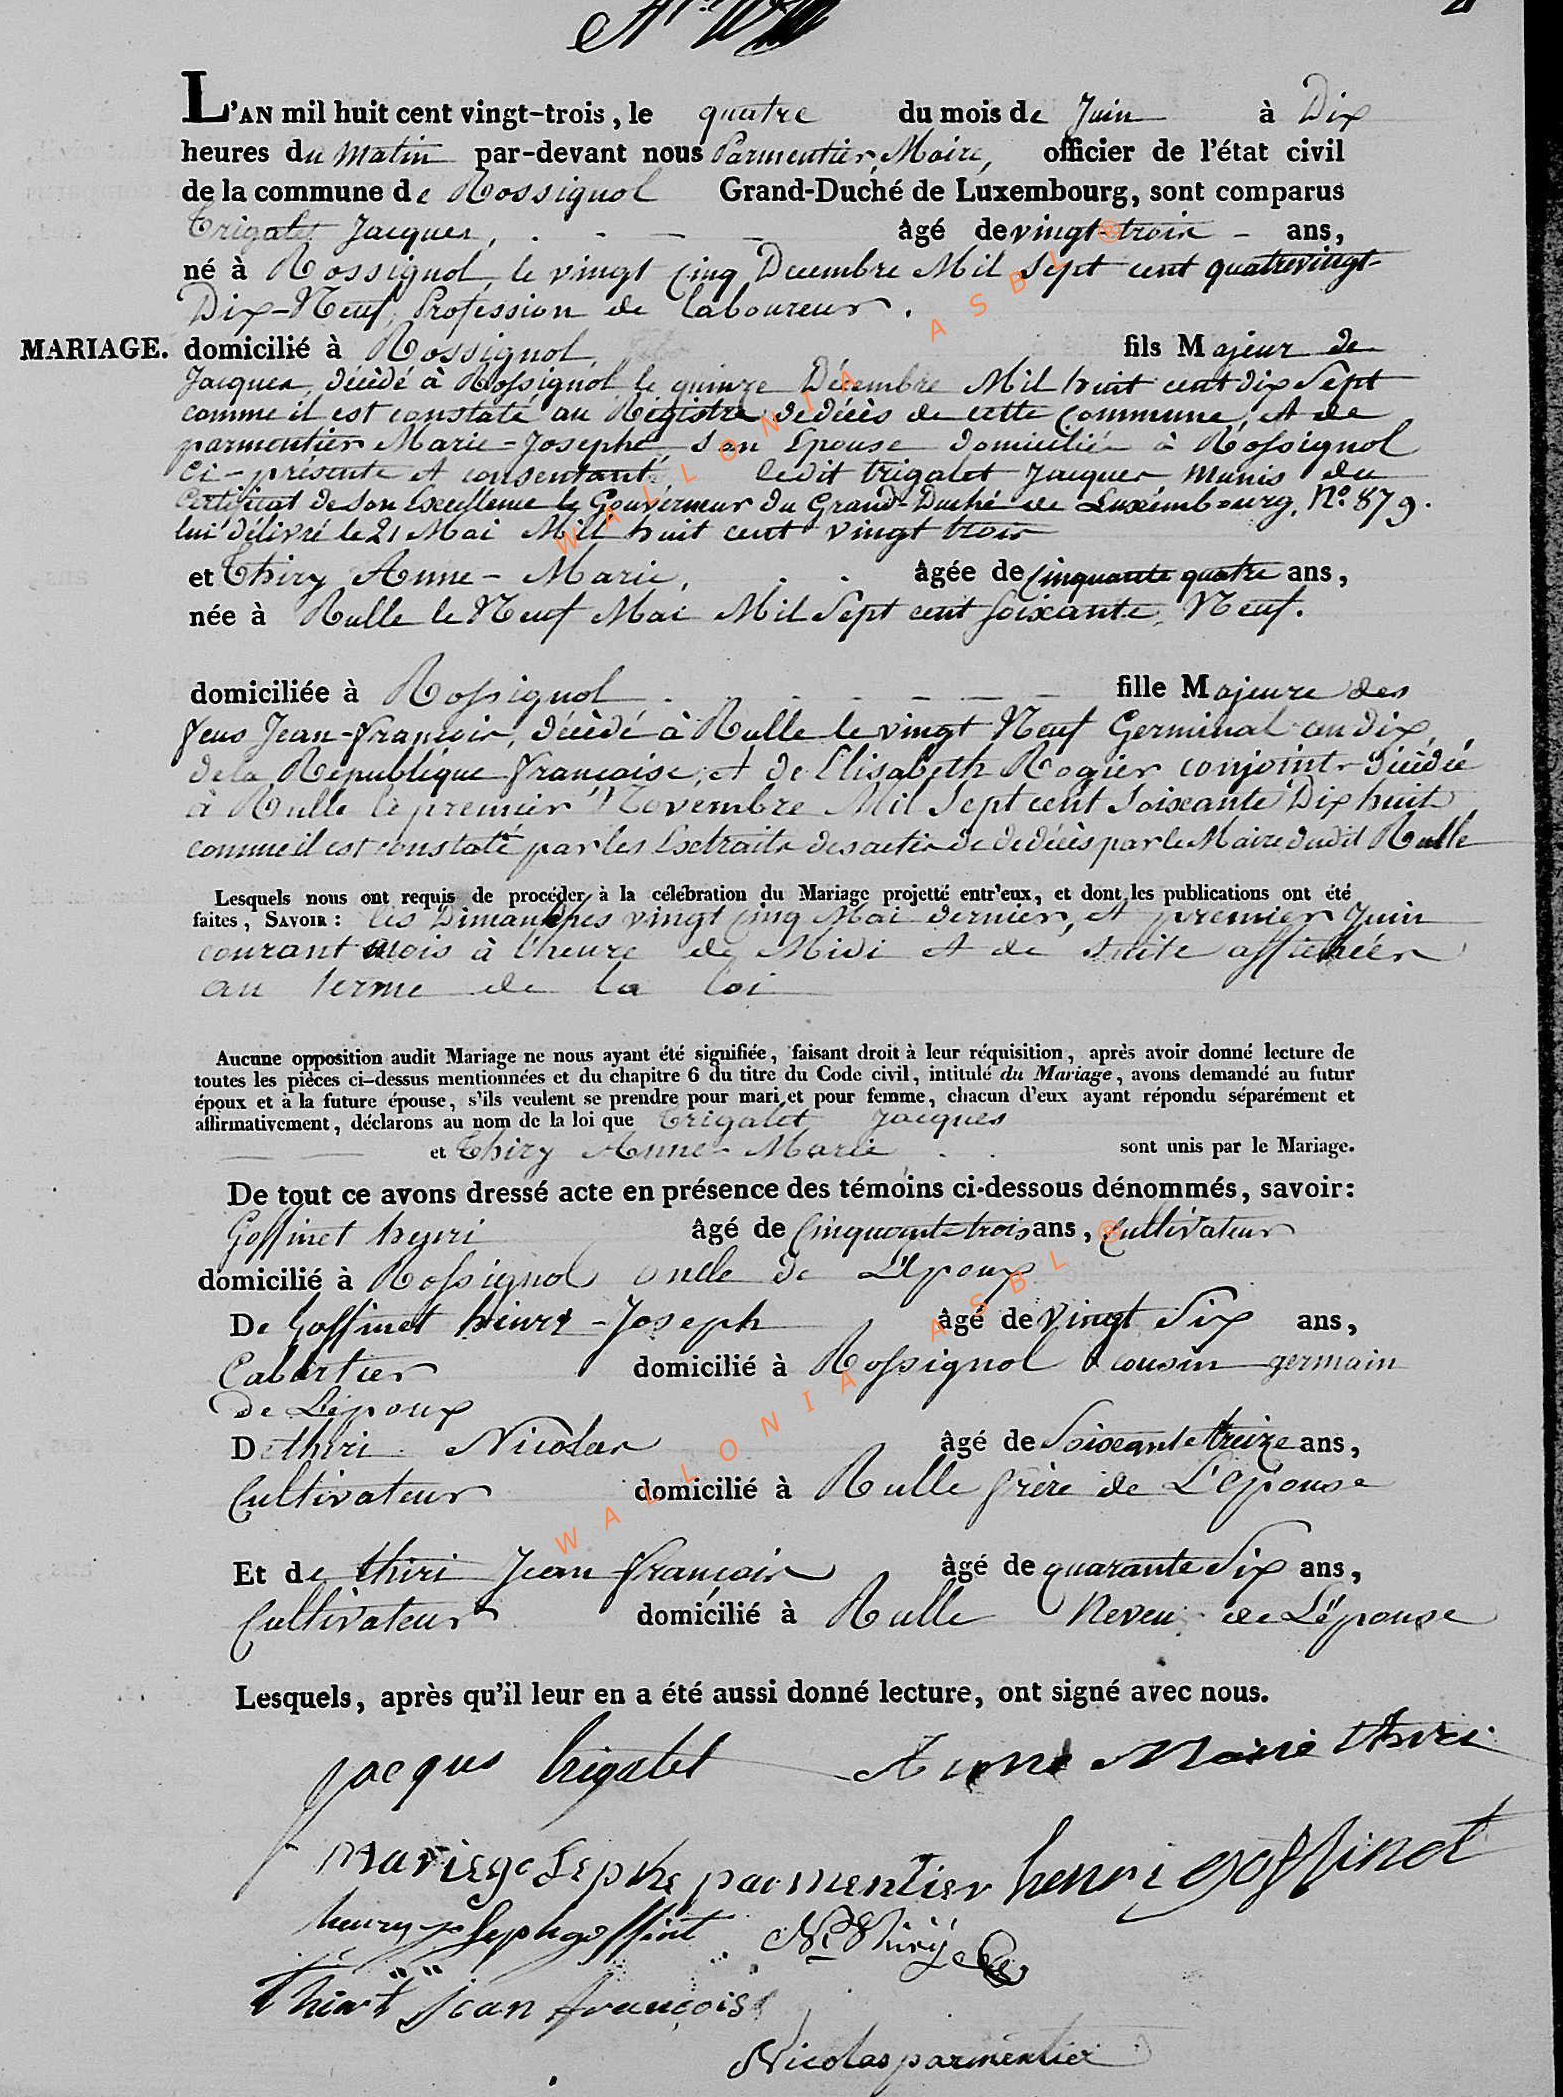 L'AN mil huit cent vingt-trois, le quatre du mois de Juin à Dix
heures du Matin par-devant nous Parmentier, Maire, officier de l'état civil
de la commune de Rossignol Grand-Duché de Luxembourg, sont comparus
Trigalet Jacques, âgé de vingt-trois ans,
né à Rossignol, le vingt cinq Decembre Mil Sept cent quatrevingt-
Dix-Neuf, Profession de laboureur.
MARIAGE. domicilié à Rossignol, fils Majeur de
Jacques, décédé à Rossignol le quinze Décembre Mil huit cent dix Sept
comme il est constaté au Régistre de décès de cette Commune, et de
parmentier Marie-Josephe, son Epouse domiciliée à Rossignol
Ci-présente et consentant, ledit trigalet Jacques Munis du
Certificat de Son Excellence le Gouverneur du Grand-Duché de Luxémbourg, N.° 879.
lui délivré le 21 Mai Mil huit cent vingt trois
et Thiry Anne-Marie, âgée de Cinquante quatre ans,
née à Rulle le Neuf Mai Mil Sept cent Soixante, Neuf.
domiciliée à Rossignol fille Majeure des
feus Jean-françois, décédé à Rulle le vingt Neuf Germinal an dix,
de la République française, et de Elisabeth Rogier conjoint décédée
à Rulle le premier Novembre Mil Sept cent Soixante Dix huit
comme il est constaté par les Extraits des actes de dedécès par le Maire dudit Rulle
Lesquels nous ont requis de procéder à la célébration du Mariage projetté entr'eux, et dont les publications ont été
faites, SAVOIR : les Dimanches vingt cinq Mai dernier, et premier Juin
courant mois à l'heure de Midi et de suite affichées
au terme de la loi
Aucune opposition audit Mariage ne nous ayant été signifiée, faisant droit à leur réquisition, après avoir donné lecture de
toutes les pièces ci-dessus mentionnées et du chapitre 6 du titre du Code civil, intitulé du Mariage, avons demandé au futur
époux et à la future épouse, s'ils veulent se prendre pour mari et pour femme, chacun d'eux ayant répondu séparément et
affirmativement, déclarons au nom de la loi que Trigalet Jacques
et Thiry Anne-Marie sont unis par le Mariage.
De tout ce avons dressé acte en présence des témoins ci-dessous dénommés, savoir:
Goffinet henri âgé de Cinquante trois ans, Cultivateur
domicilié à Rossignol oncle de L'Epoux
De Goffinet henri-Joseph âgé de Vingt Six ans,
Cabartier domicilié à Rossignol cousin germain
de L'époux
De thiri Nicolas âgé de Soixante treize ans,
Cultivateur domicilié à Rulle frère de L'Epouse
Et de thiri Jean françois âgé de quarante Six ans,
Cultivateur domicilié à Rulle Neveu de L'Epouse
Lesquels, après qu'il leur en a été aussi donné lecture, ont signé avec nous.
jacques trigalet Anne Marie thiri
marie josephe parmentier henri goffinet
henry joseph goffinet N. Thiry
Thiri jean françois
Nicolas parmentier
WALLONIA ASBL ®
WALLONIA ASBL ®